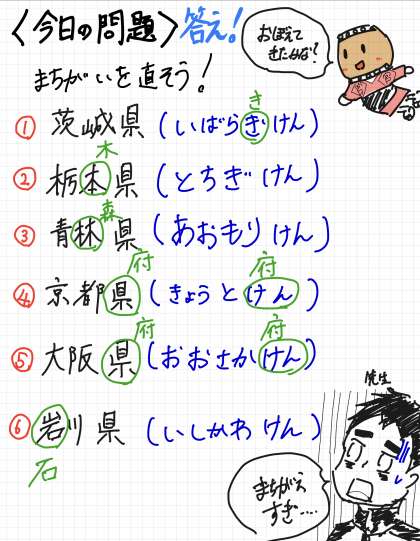 〈今日の問題〉答え!
おぼえてきたかな?
まちがいを直そう!
き
① 茨城県(いばらぎけん)
木
② 栃本県(とちぎけん)
森
③ 青林県(あおもりけん)
府 府
④ 京都県(きょうとけん)
府 府
⑤ 大阪県(おおさかけん)
⑥ 岩川県(いしかわけん)
石
先生
まちがえすぎ....